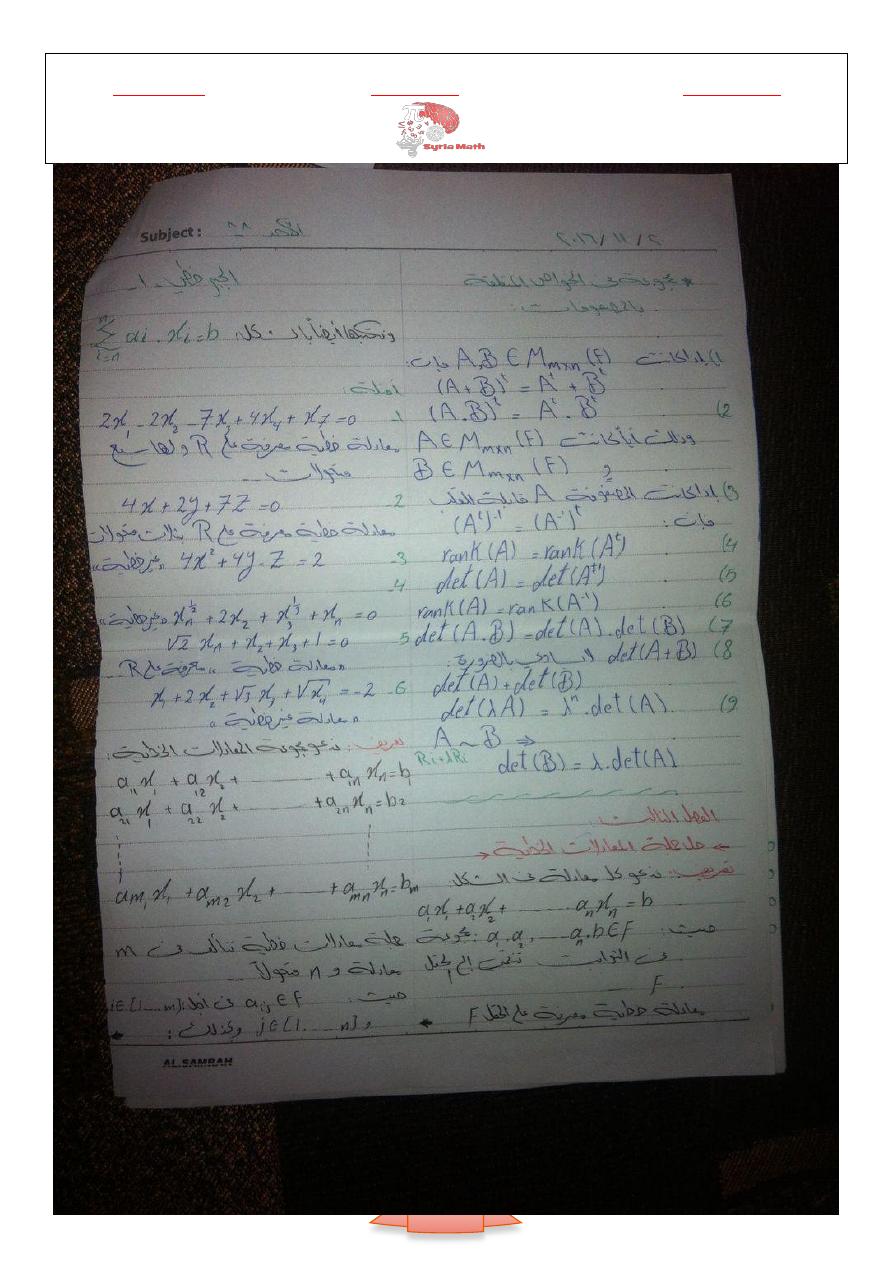 Syria Math
Subject:
٢٠١٦/١١/٢
* مجموعة من الخواص المتعلقة
بالمصفوفات:
1) إذا كانت A,B ∈ Mmxn (F) فإن:
(A+B)ᵗ = Aᵗ + Bᵗ
2) (A.B)ᵗ = Aᵗ . Bᵗ
وذلك أياً كانت A ∈ Mmxn (F)
و B ∈ Mmxn (F)
3) إذا كانت المصفوفة A قابلة للقلب
فإن: (Aᵗ)⁻¹ = (A⁻¹)ᵗ
4) rank(A) = rank(Aᵗ)
5) det(A) = det(Aᵗ)
6) rank(A) = rank(A⁻¹)
7) det(A.B) = det(A).det(B)
8) det(A+B) لا تساوي بالضرورة:
det(A)+det(B)
9) det(λA) = λⁿ.det(A)
A ~ B ⇒
Ri+λRi det(B) = λ.det(A)
الفصل الثالث:
حل جملة المعادلات الخطية
تعريف: ندعو كل معادلة من الشكل:
a₁x₁ + a₂x₂ + ........ aₙxₙ = b
حيث: a₁, a₂, ..... aₙ, b ∈ F مجموعة
من الثوابت تنتمي إلى الحقل
F
معادلة خطية معرفة على الحقل F
الجبر خطي -١-
ونكتبها أيضاً بالشكل: Σ ai . xi = b
أمثلة:
1- 2x₁ - 2x₂ - 7x₃ + 4x₄ + x₇ = 0
معادلة خطية معرفة على R ولها سبع
متحولات
2- 4x + 2y + 7Z = 0
معادلة خطية معرفة على R بثلاث متحولات
3- 4x² + 4y - Z = 2 «غير خطية»
4-
x₁^½ + 2x₂ + x₃^⅓ + xₙ = 0 «غير خطية»
5- √2 x₁ + x₂ + x₃ + 1 = 0
«معادلة خطية» معرفة على R
6- x₁ + 2x₂ + √3 x₃ + √x₄ = -2
«معادلة غير خطية»
تعريف: ندعو مجموعة المعادلات الخطية:
a₁₁x₁ + a₁₂x₂ + ........ + a₁ₙxₙ = b₁
a₂₁x₁ + a₂₂x₂ + ........ + a₂ₙxₙ = b₂
am₁x₁ + am₂x₂ + ........ + amₙxₙ = bm
جملة معادلات خطية تتألف من m
معادلة و n متحولاً
حيث: aij ∈ F من أجل: i ∈ [1 .... m]
و j ∈ [1 ...... n] وكذلك:
AL SAMRAH